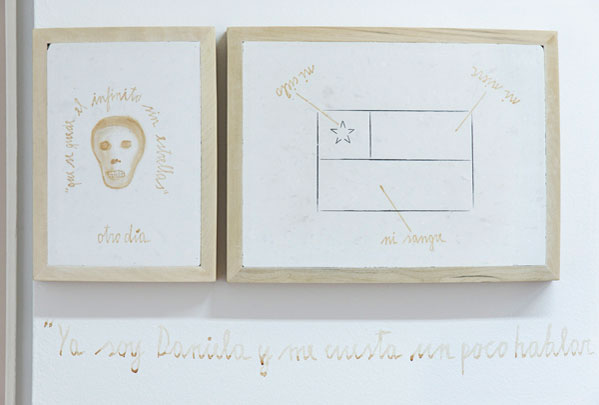 "que se quede el infinito sin estrellas"
otro día
mi cielo
mi nieve
mi sangre
"Ya soy Daniela y me cuesta un poco hablar